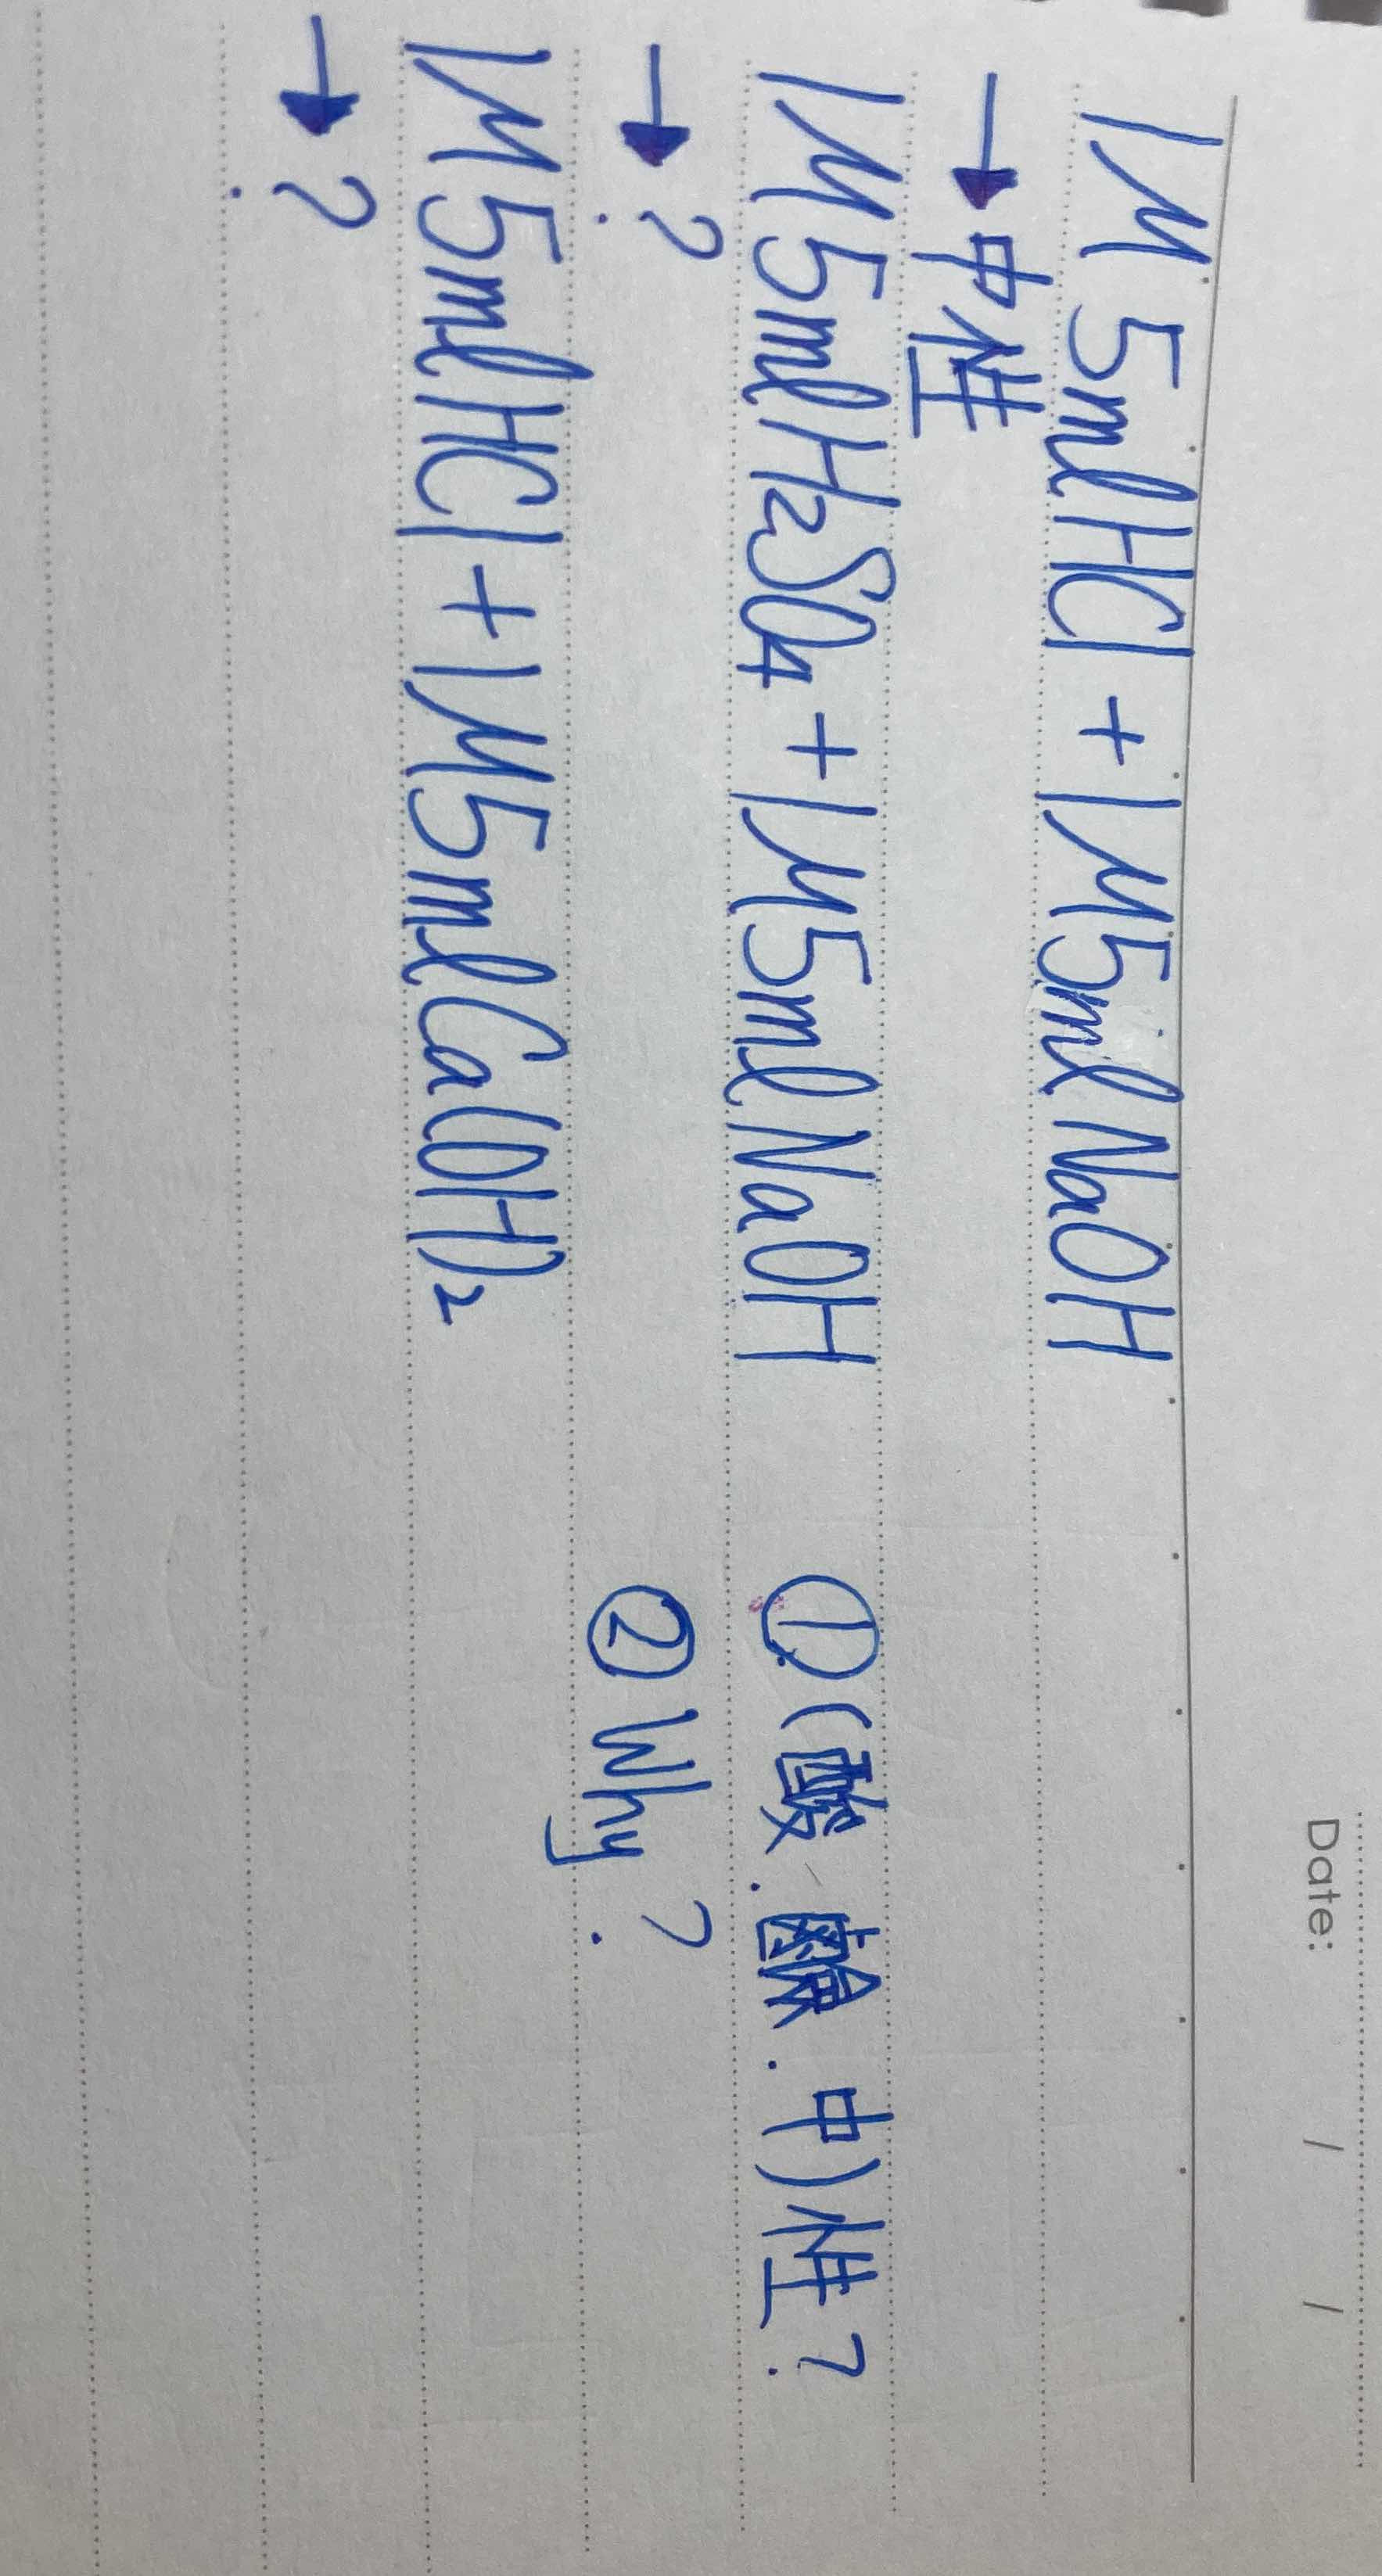 Date: / /
1M 5ml HCl + 1M 5ml NaOH
→ 中性
1M 5ml H₂SO₄ + 1M 5ml NaOH ①(酸.鹼.中)性?
→ ? ② Why?
1M 5ml HCl + 1M 5ml Ca(OH)₂
→ ?